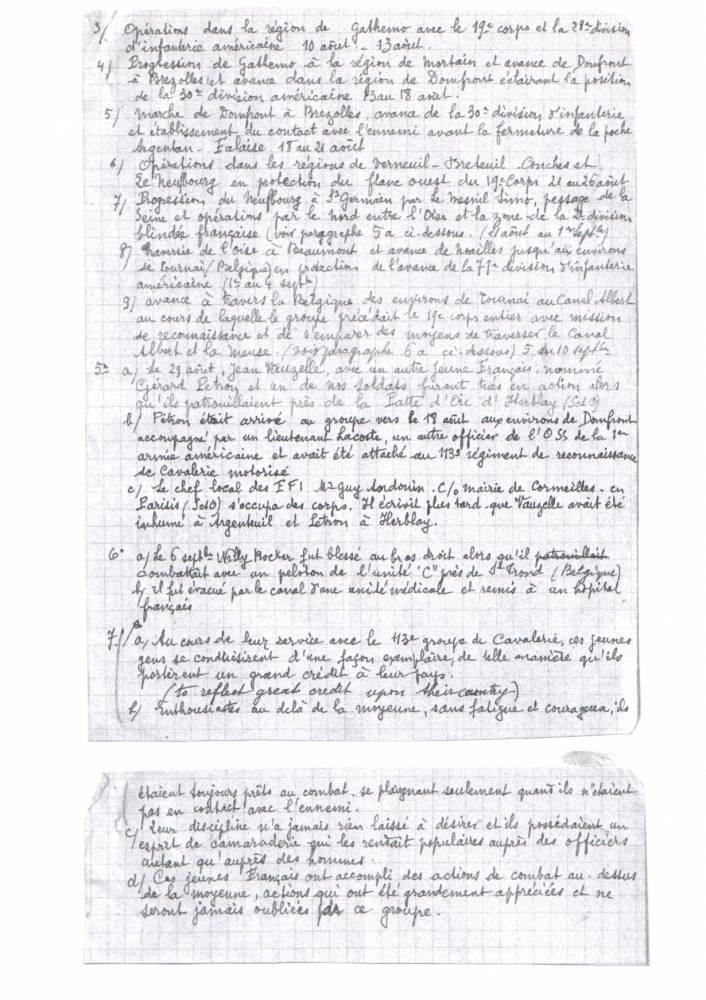 3/ Opérations dans la région de Gathemo avec le 19e corps et la 29e division
d'infanterie américaine 10 août - 13 août.
4/ Progression de Gathemo à la région de Mortain et avance de Domfront
à Brezolles et avance dans la région de Domfront éclairant la position
de la 30e division américaine 13 au 18 août.
5/ Marche de Domfront à Brezolles, avance de la 30e division d'infanterie
et établissement du contact avec l'ennemi avant la fermeture de la poche
Argentan - Falaise 18 au 21 août
6/ Opérations dans les régions de Verneuil - Breteuil Conches et
Le Neufbourg en protection du flanc ouest du 19e Corps 21 au 26 août
7/ Progression du Neufbourg à St Germain par Le Mesnil Simo, passage de la
Seine et opérations par le Nord entre l'Oise et la zone de la 2e division
blindée française (voir paragraphe 5a ci-dessous. (27 août au 1er septbre)
8/ Traversée de l'Oise à Beaumont et avance de Noailles jusqu'aux environs
de Tournai (Belgique) en protection de l'avance de la division d'infanterie
américaine (1er au 4 septbre)
9/ avance à travers la Belgique des environs de Tournai au Canal Albert
au cours de laquelle le groupe précédait le 19e corps entier avec mission
de reconnaissance et de s'emparer des moyens de traverser le Canal
Albert et la Meuse. (voir paragraphe 6a ci-dessous) 5 au 10 septbre
5° a/ Le 29 août, Jean Vauzelle, avec un autre jeune Français, nommé
Gérard Petron et un de nos soldats furent tués en action alors
qu'ils patrouillaient près de la Patte d'Oie d'Herblay (S&O)
b/ Pétron était arrivé au groupe vers le 18 août aux environs de Domfront
accompagné par un lieutenant Lacoste, un autre officier de l'OSS de la 1re
armée américaine et avait été attaché au 113e régiment de reconnaissance
de Cavalerie motorisé
c/ Le chef local des FFI Mr Guy C/o Mairie de Cormeilles-en
Parisis (S&O) s'occupa des corps. Il écrivit plus tard que Vauzelle avait été
inhumé à Argenteuil et Létron à Herblay.
6° a/ Le 6 septbre Willy Rocker fut blessé au bras droit alors qu'il patrouillait
combattait avec un peloton de l'unité "C" près de St Trond (Belgique)
b/ il fut évacué par le canal d'une unité médicale et remis à un hôpital
français
7/ a/ Au cours de leur service avec le 113e groupe de Cavalerie, ces jeunes
gens se conduisirent d'une façon exemplaire, de telle manière qu'ils
portèrent un grand crédit à leur pays.
(to reflect great credit upon their country)
b/ Enthousiastes au delà de la moyenne, sans fatigue et courageux, ils
étaient toujours prêts au combat, se plaignant seulement quand ils n'étaient
pas en contact avec l'ennemi.
c/ Leur discipline n'a jamais rien laissé à désirer et ils possédaient un
esprit de camaraderie qui les rendait populaires auprès des officiers
autant qu'auprès des hommes.
d/ Ces jeunes Français ont accompli des actions de combat au-dessus
de la moyenne, actions qui ont été grandement appréciées et ne
seront jamais oubliées par ce groupe.